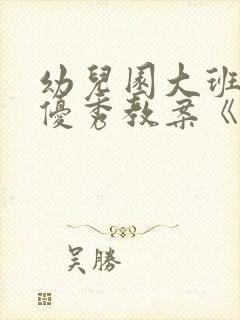 幼兒園大班
優秀教案《
吴勝